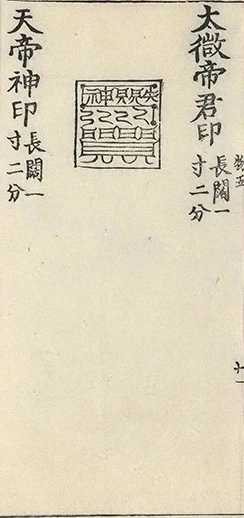 太微帝君印
長闊一
寸二分
天帝神印
長闊一
寸二分